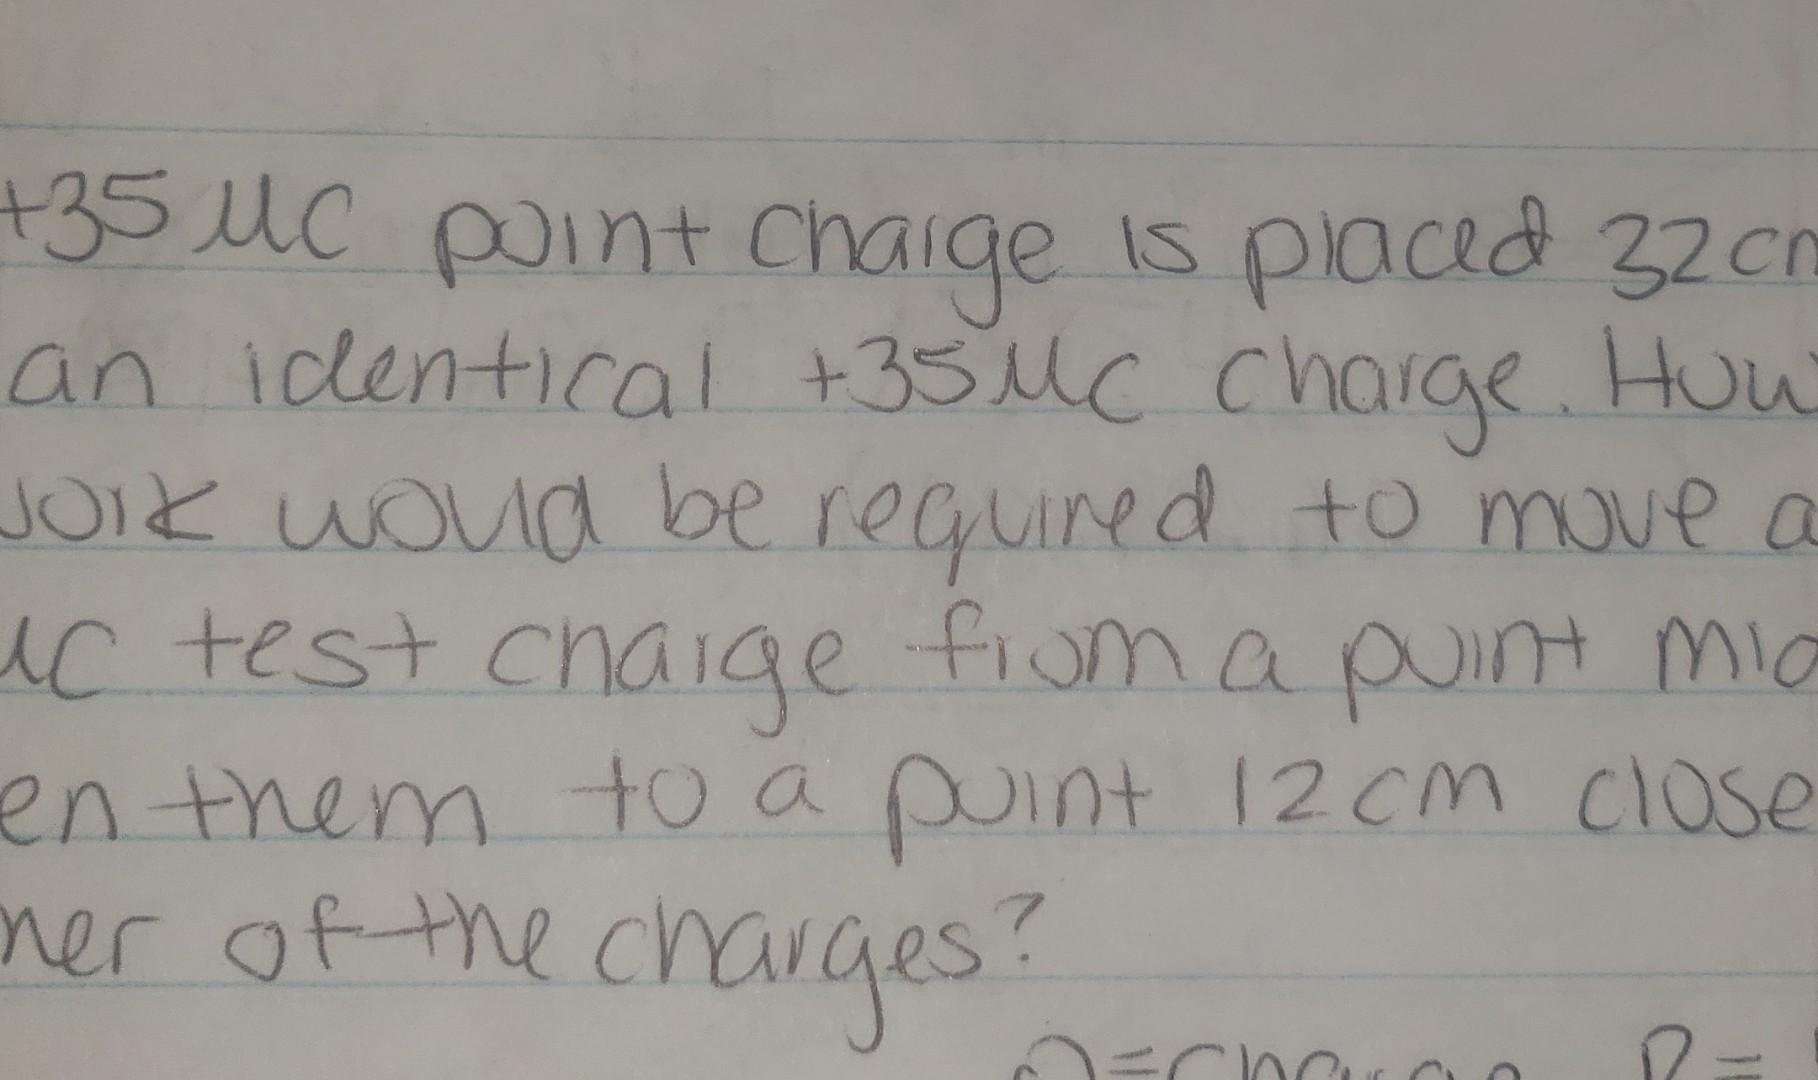 +35 µC point charge is placed 32cm
an identical +35µC charge. How
work would be required to move a
µC test charge from a point mid
en them to a point 12cm close
her of the charges?
Q=Charge R=